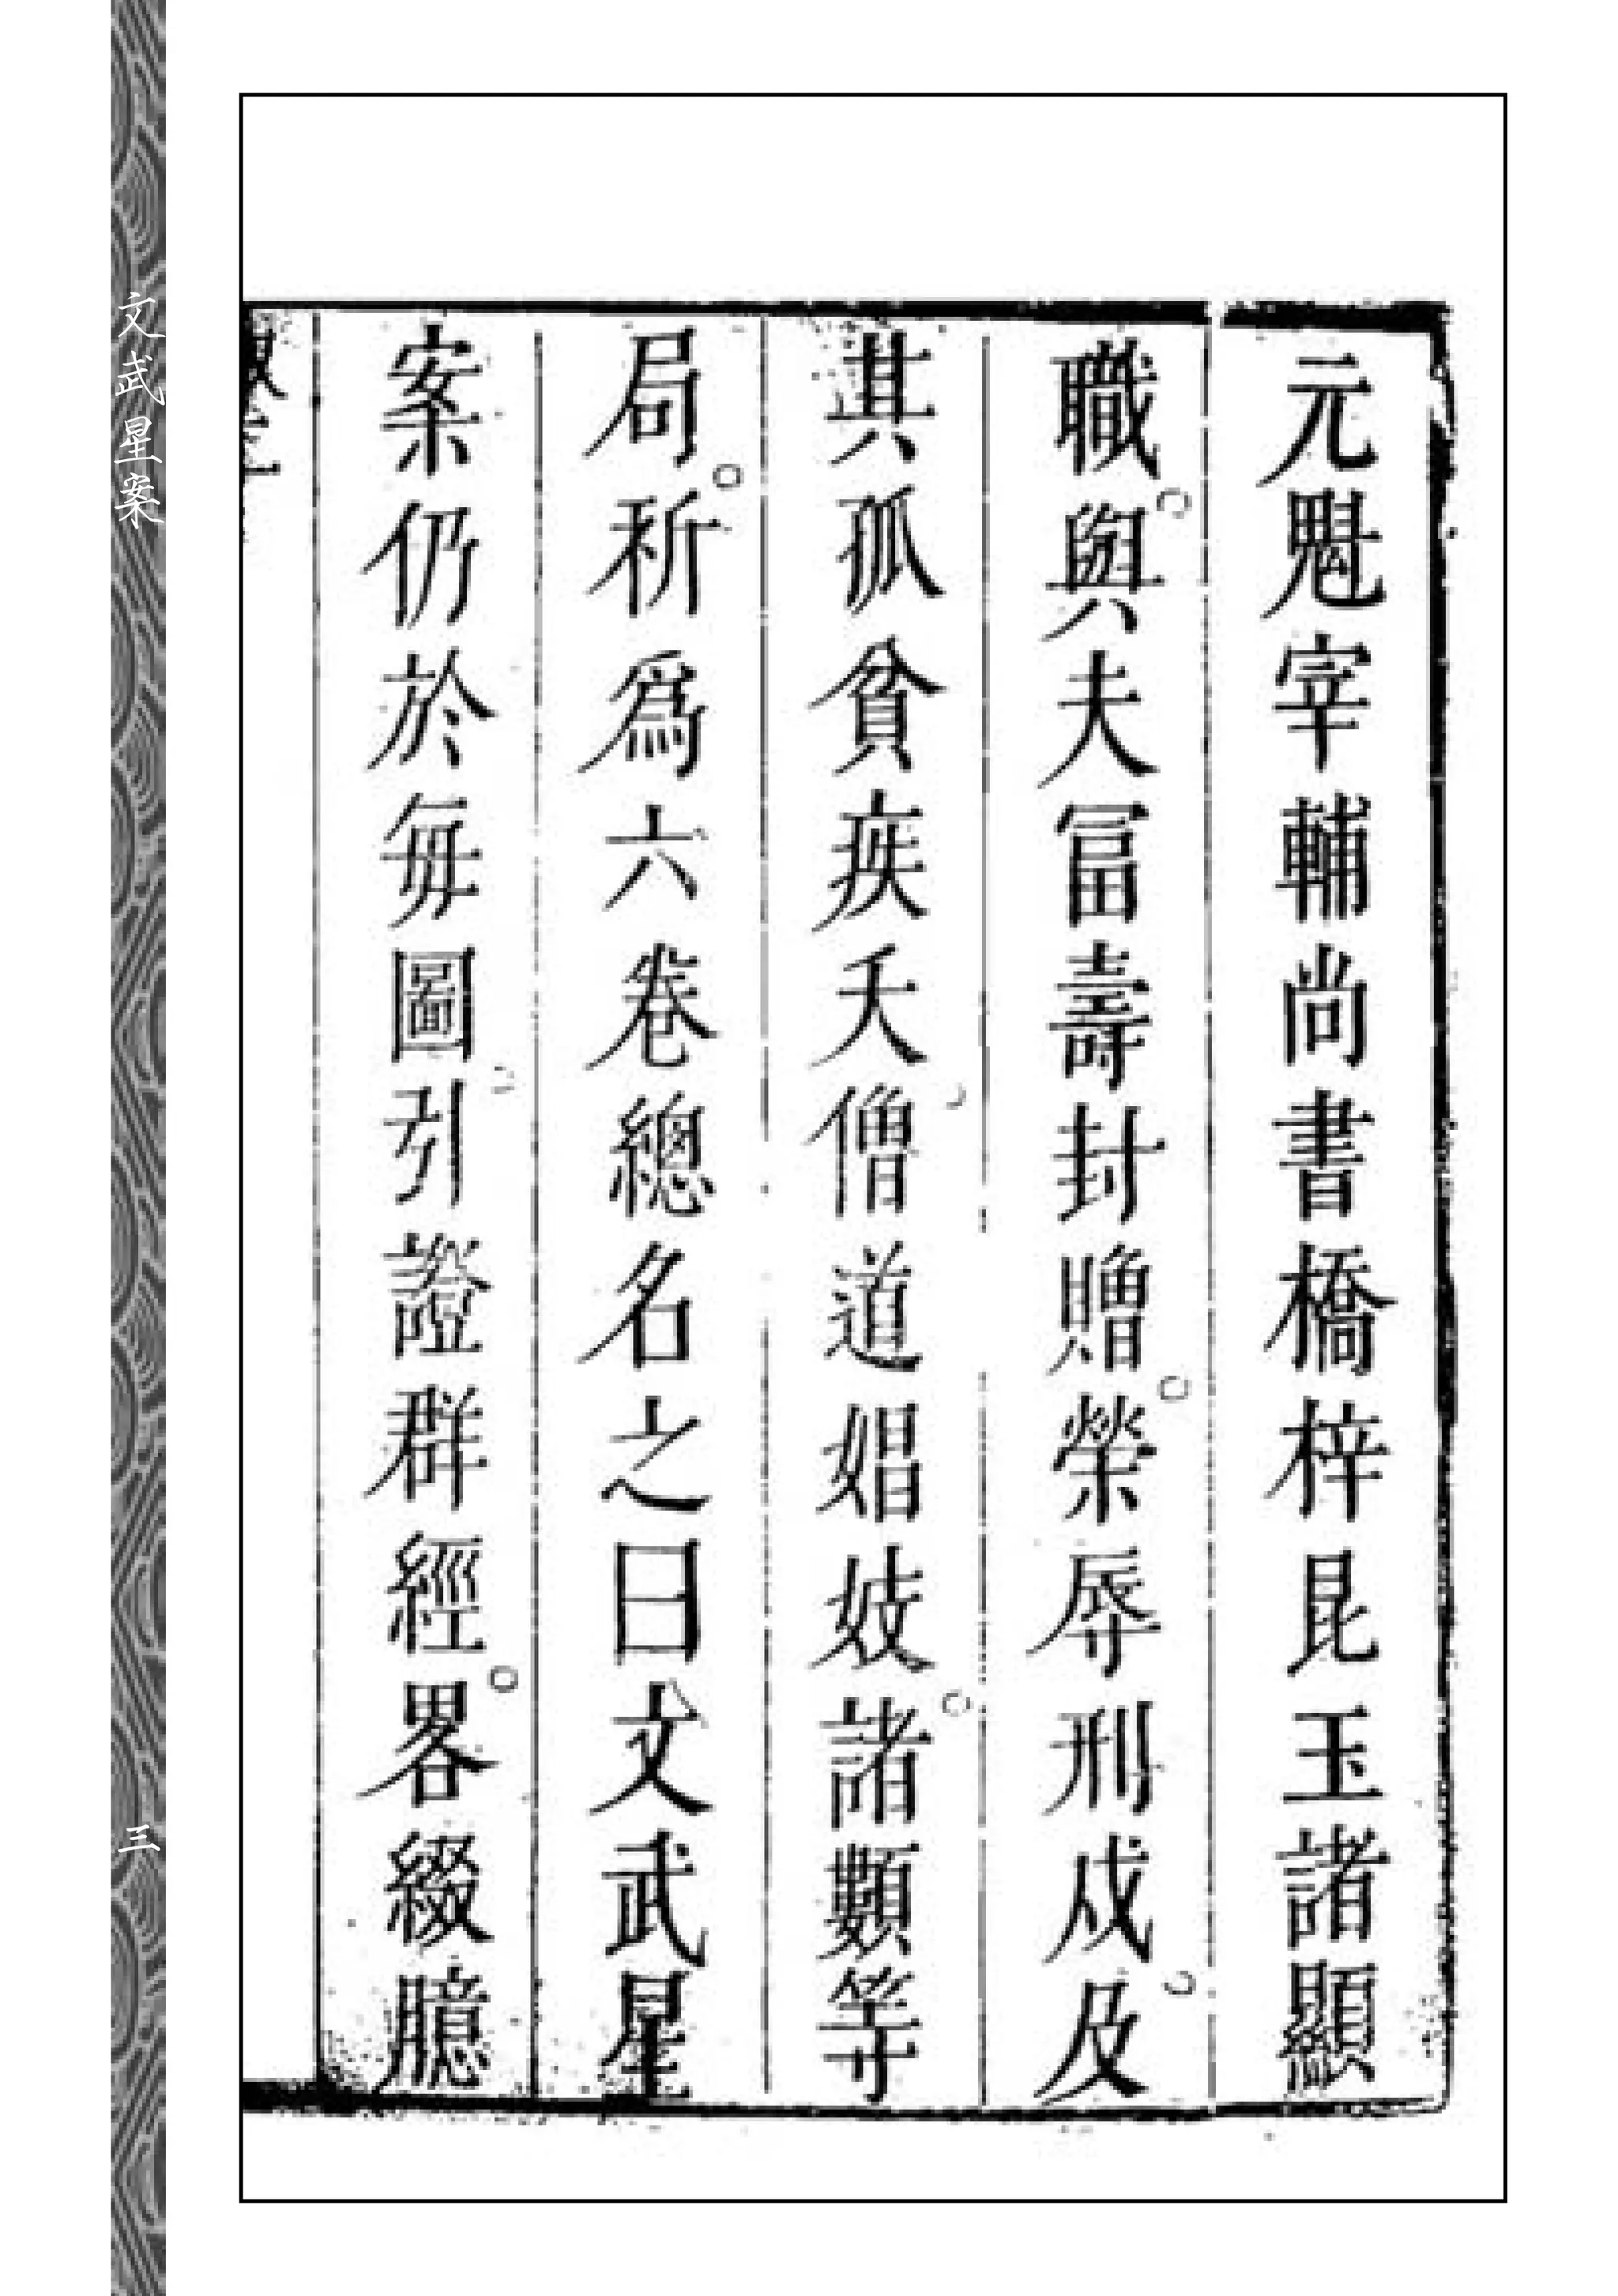 元魁宰輔尚書橋梓昆玉諸顯
職。與夫冨壽封贈。榮辱刑戍。及
其孤貧疾夭。僧道娼妓。諸類等
局。析爲六卷總名之曰文武星
案仍於每圖。引證群經。畧綴臆
文武星案
三